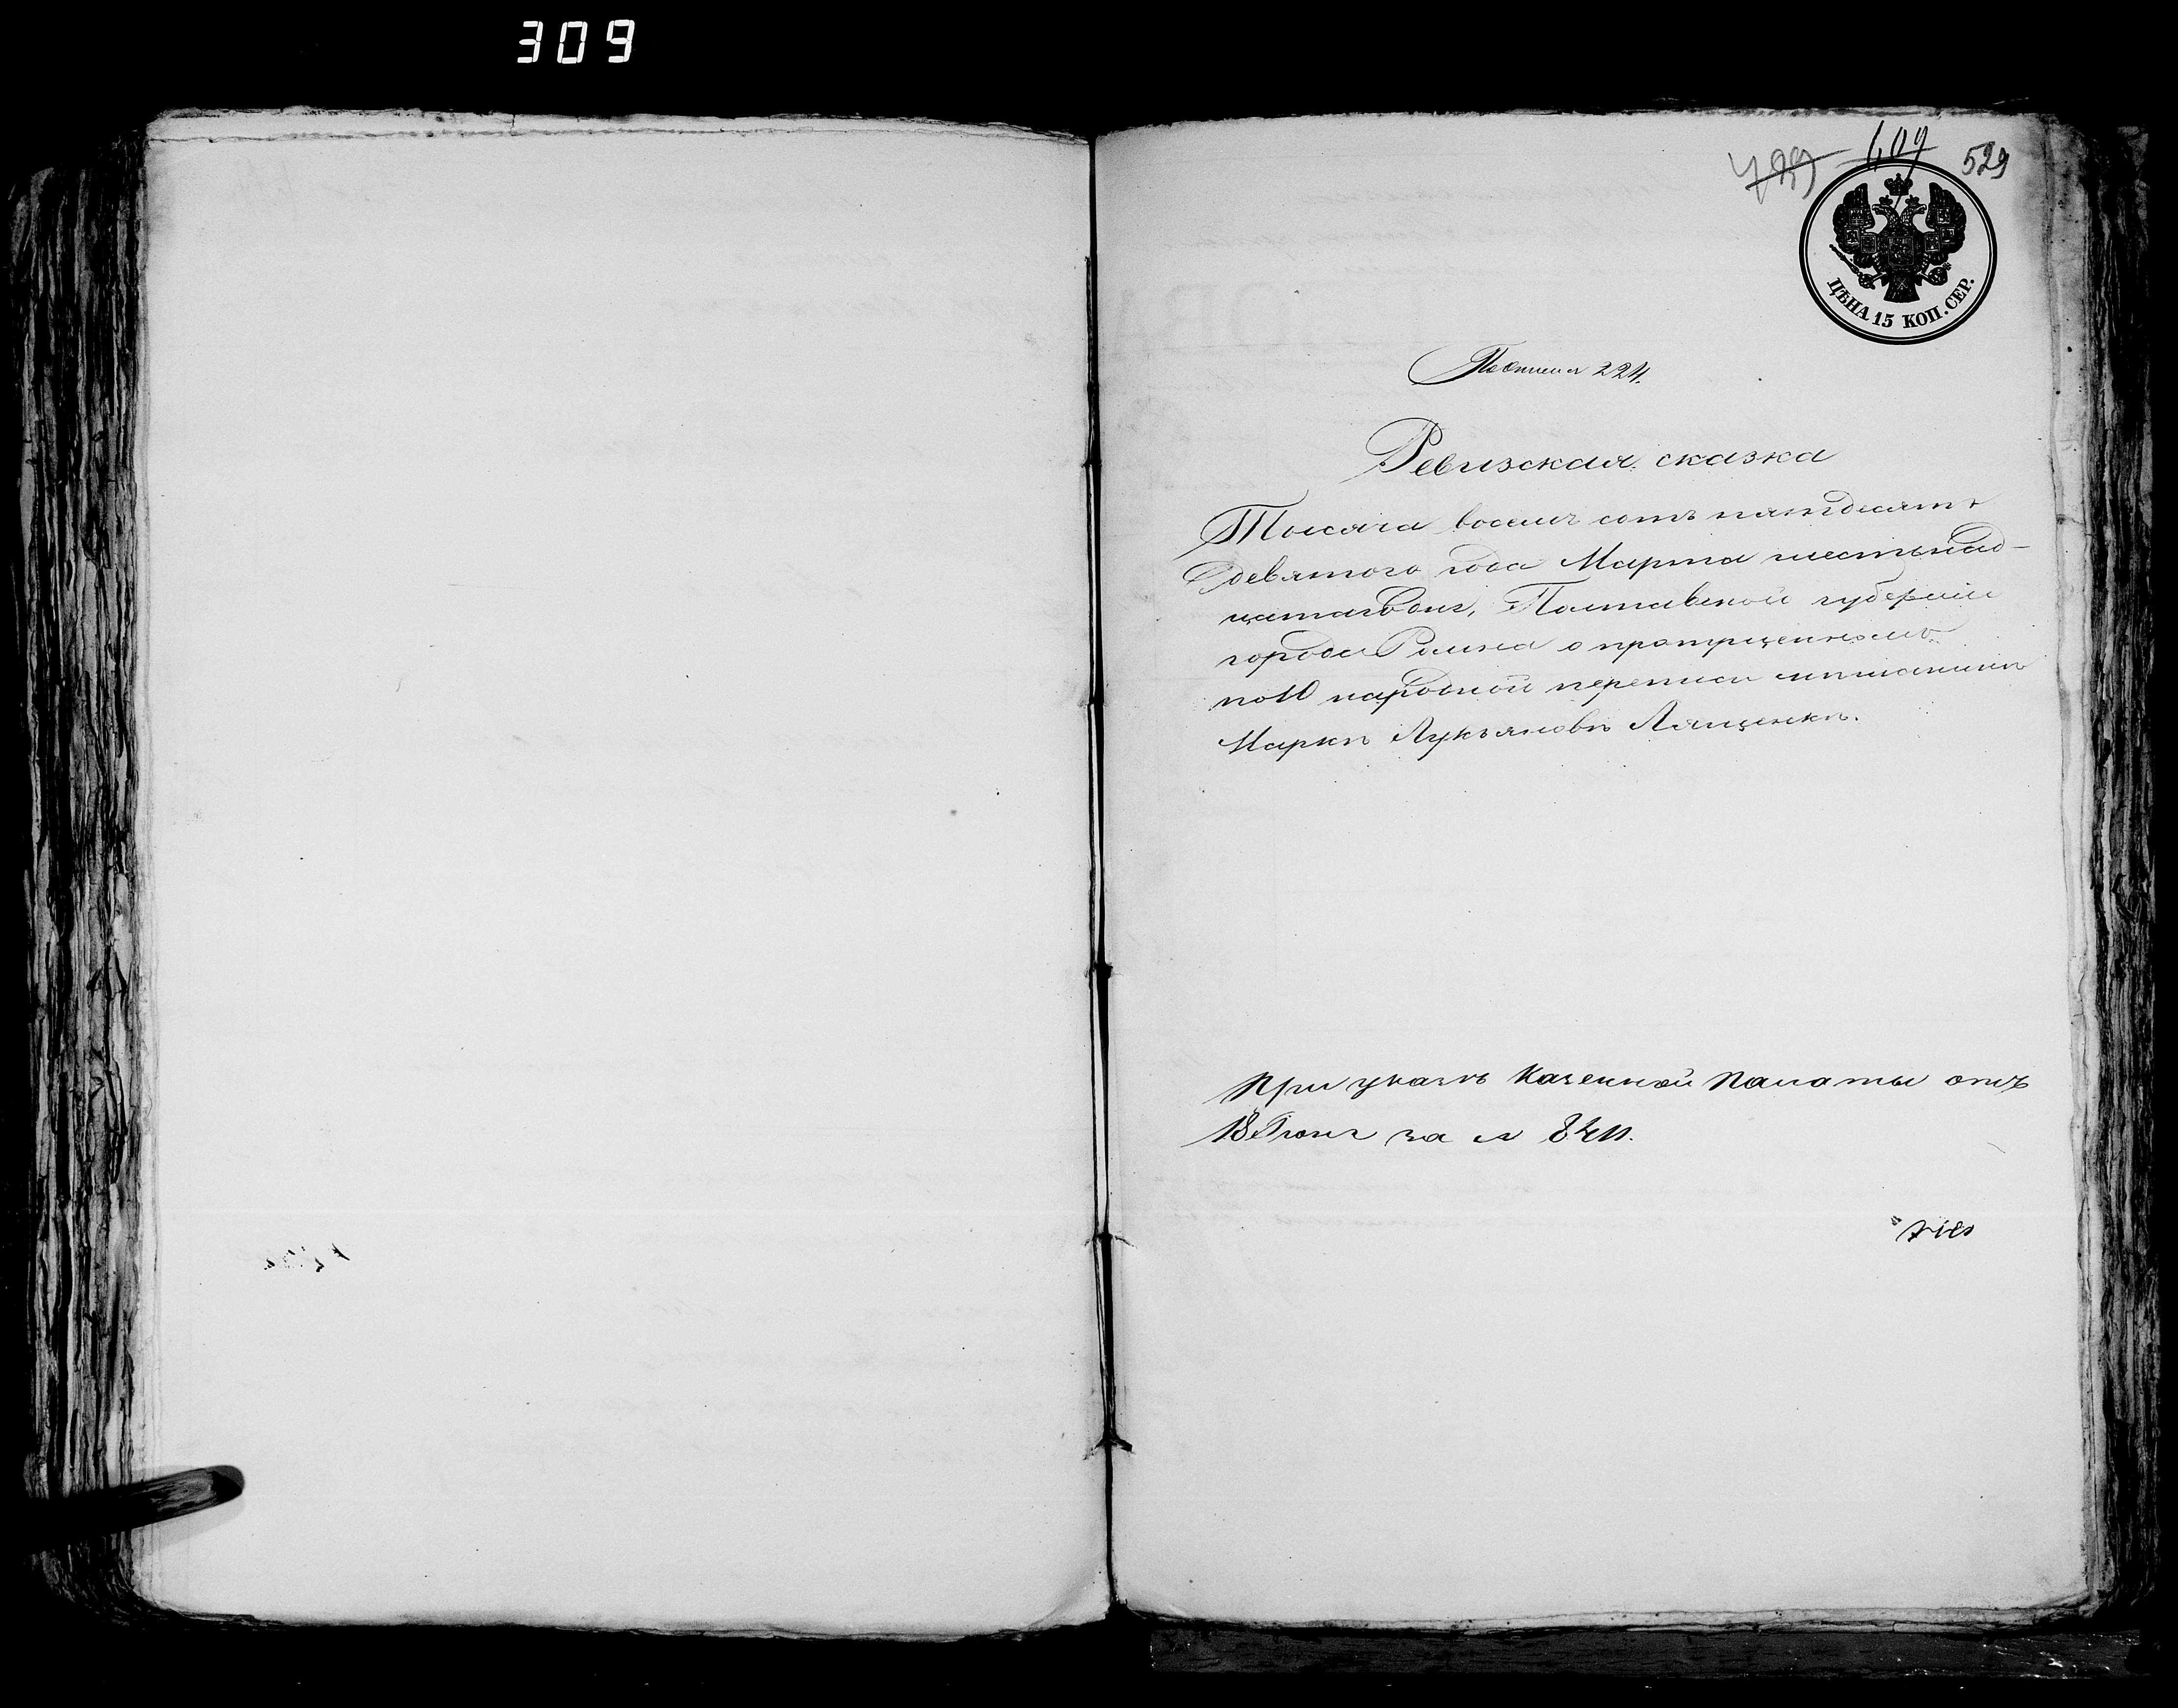 309
789 409 529
ЦѢНА 15 КОП. СЕР.
224.
Ревизская сказка
Тысяча восемь сотъ пятдесятъ
девятого года Марта шестьнад-
цатаго дня, Полтавской губерніи
города Ромна о пропущенномъ
по 10 народной переписи мещанинѣ
Маркѣ Лукьяновѣ Лященкѣ.
При указѣ Казенной Палаты отъ
18 Іюня за № 8411.